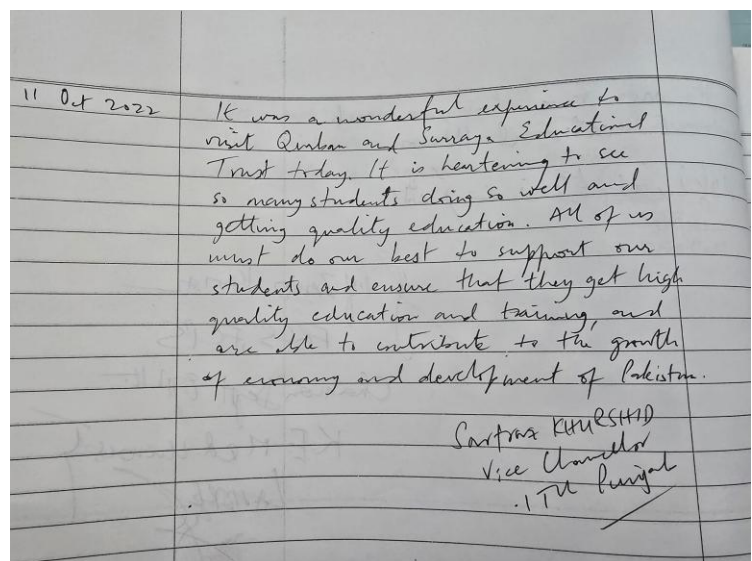 11 Oct 2022
It was a wonderful experience to
visit Qurban and Surraya Educational
Trust today. It is heartening to see
so many students doing so well and
getting quality education. All of us
must do our best to support our
students and ensure that they get high
quality education and training, and
are able to contribute to the growth
of economy and development of Pakistan.
Sarfraz KHURSHID
Vice Chancellor
ITU Punjab